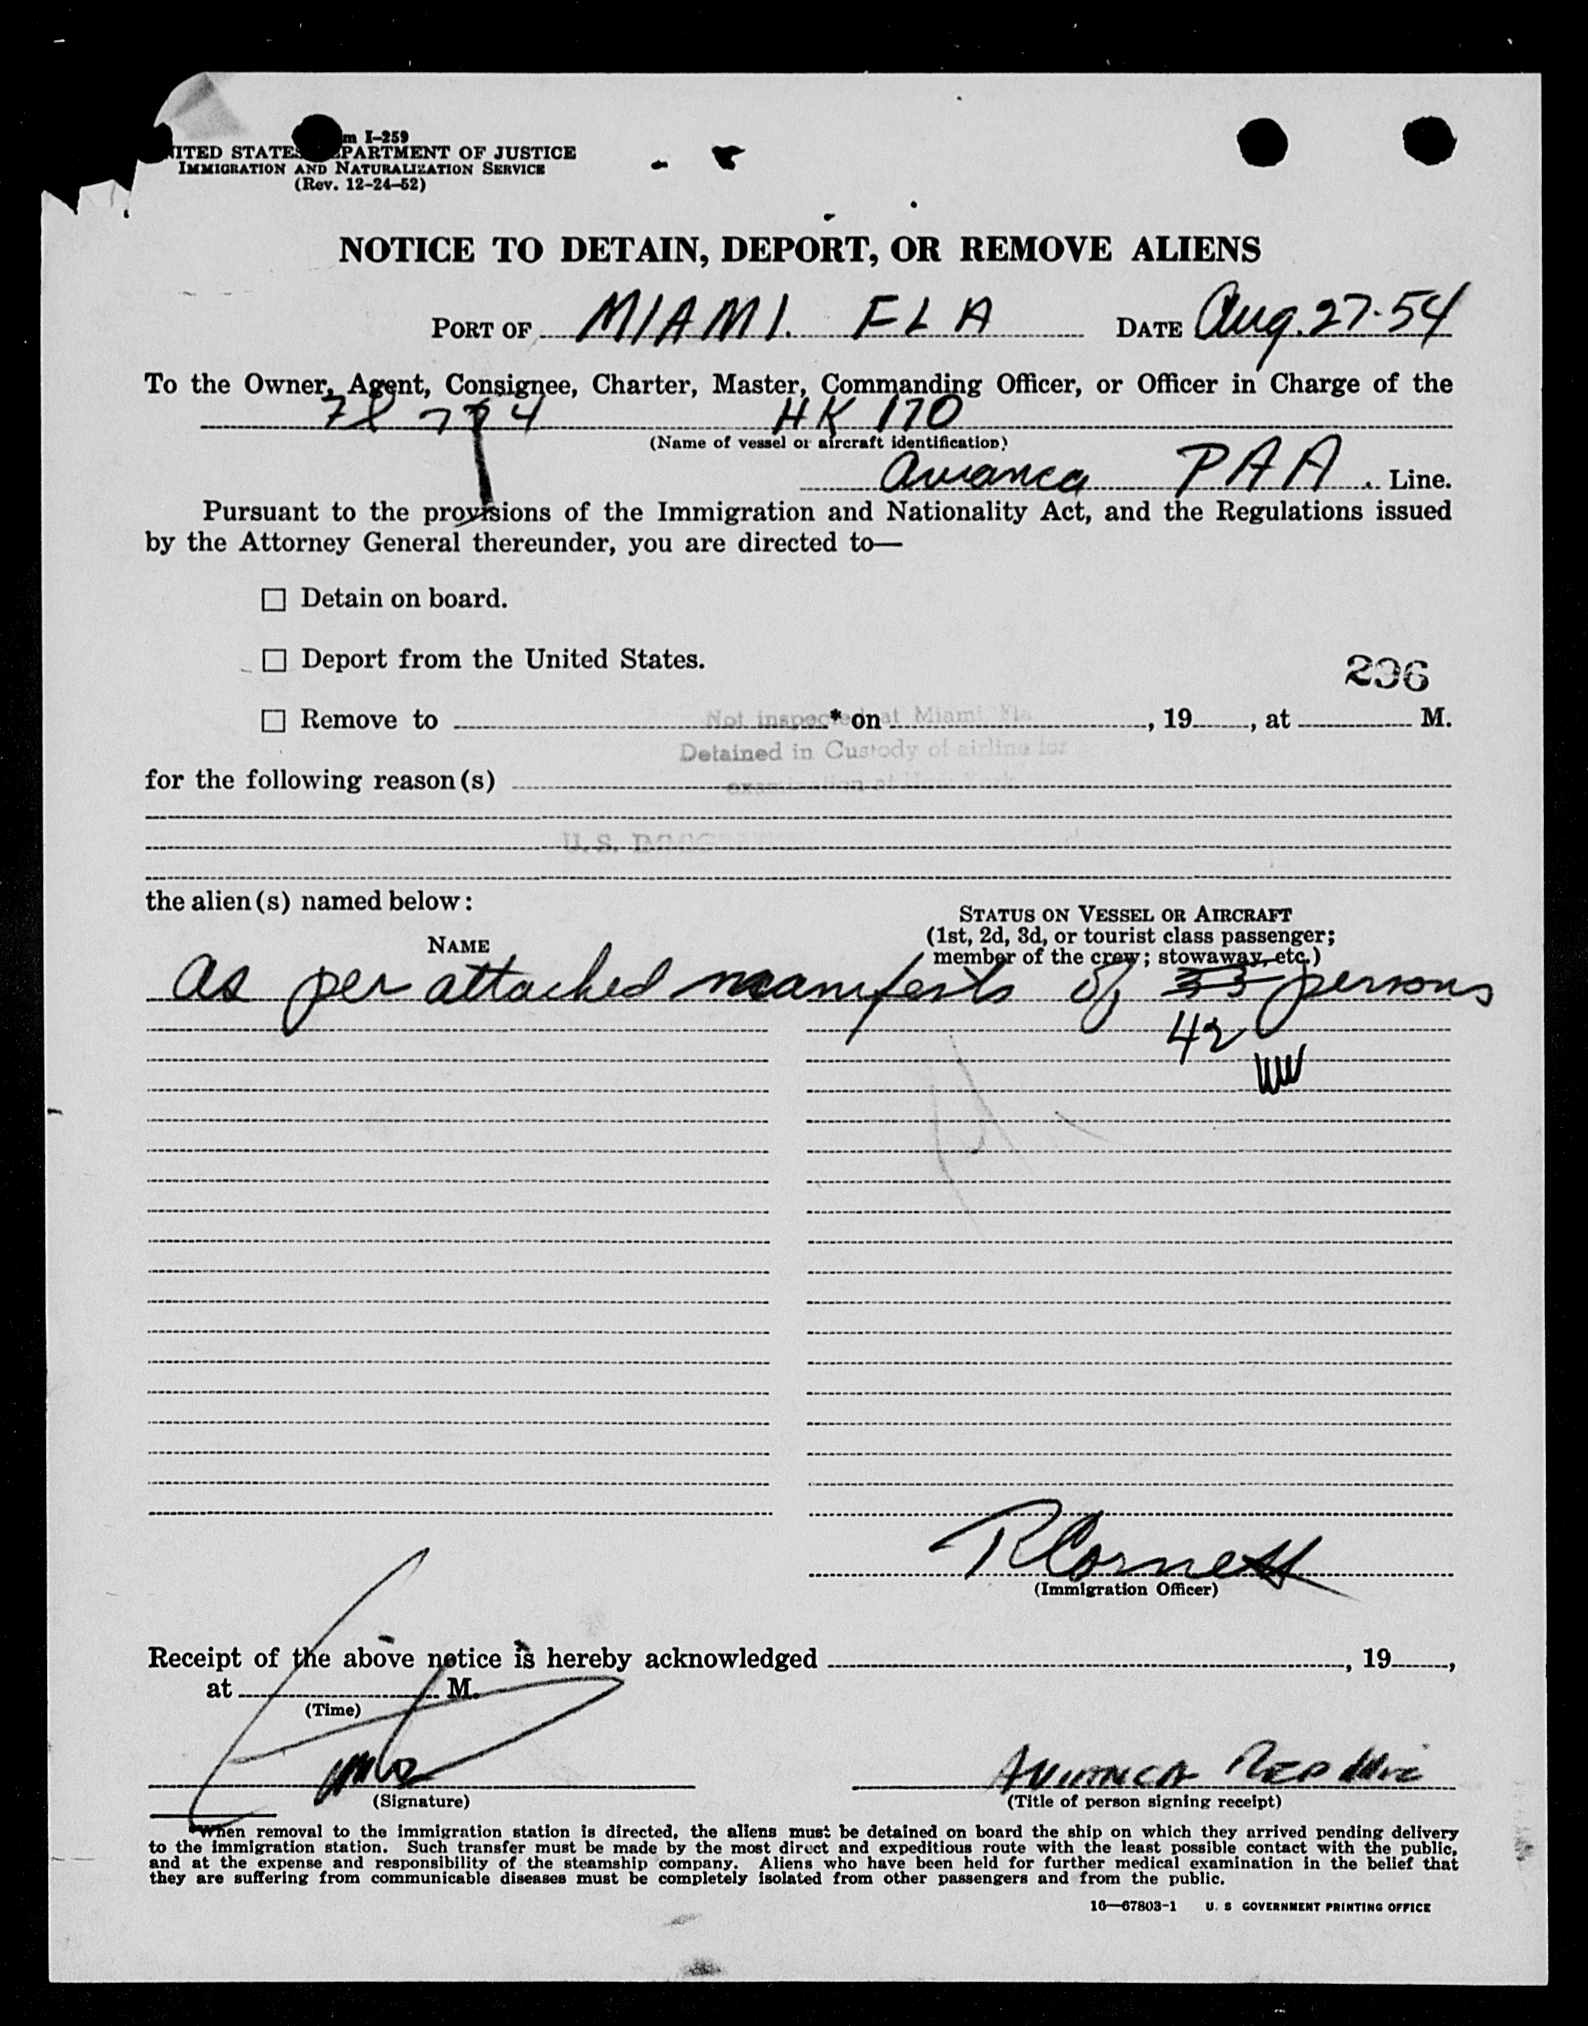 m I-259
ITED STATES PARTMENT OF JUSTICE
IMMIGRATION AND NATURALIZATION SERVICE
(Rev. 12-24-52)
NOTICE TO DETAIN, DEPORT, OR REMOVE ALIENS
PORT OF MIAMI. FLA DATE Aug. 27-54
To the Owner, Agent, Consignee, Charter, Master, Commanding Officer, or Officer in Charge of the
HK 170
(Name of vessel or aircraft identification)
Avianca PAA. Line.
Pursuant to the provisions of the Immigration and Nationality Act, and the Regulations issued
by the Attorney General thereunder, you are directed to—
☐ Detain on board.
☐ Deport from the United States.
296
☐ Remove to * on , 19 , at M.
Not inspected at Miami, Fla
Detained in Custody of airline for
examination at New York
for the following reason(s)
U. S. IMMIGRATION
the alien(s) named below:
STATUS ON VESSEL OR AIRCRAFT
(1st, 2d, 3d, or tourist class passenger;
member of the crew; stowaway, etc.)
NAME
as per attached manifests of 33 persons
42
R Cornett
(Immigration Officer)
Receipt of the above notice is hereby acknowledged , 19 ,
at M.
(Time)
AVIANCA
(Signature)
(Title of person signing receipt)
*When removal to the immigration station is directed, the aliens must be detained on board the ship on which they arrived pending delivery
to the immigration station. Such transfer must be made by the most direct and expeditious route with the least possible contact with the public,
and at the expense and responsibility of the steamship company. Aliens who have been held for further medical examination in the belief that
they are suffering from communicable diseases must be completely isolated from other passengers and from the public.
16—67803-1 U. S. GOVERNMENT PRINTING OFFICE